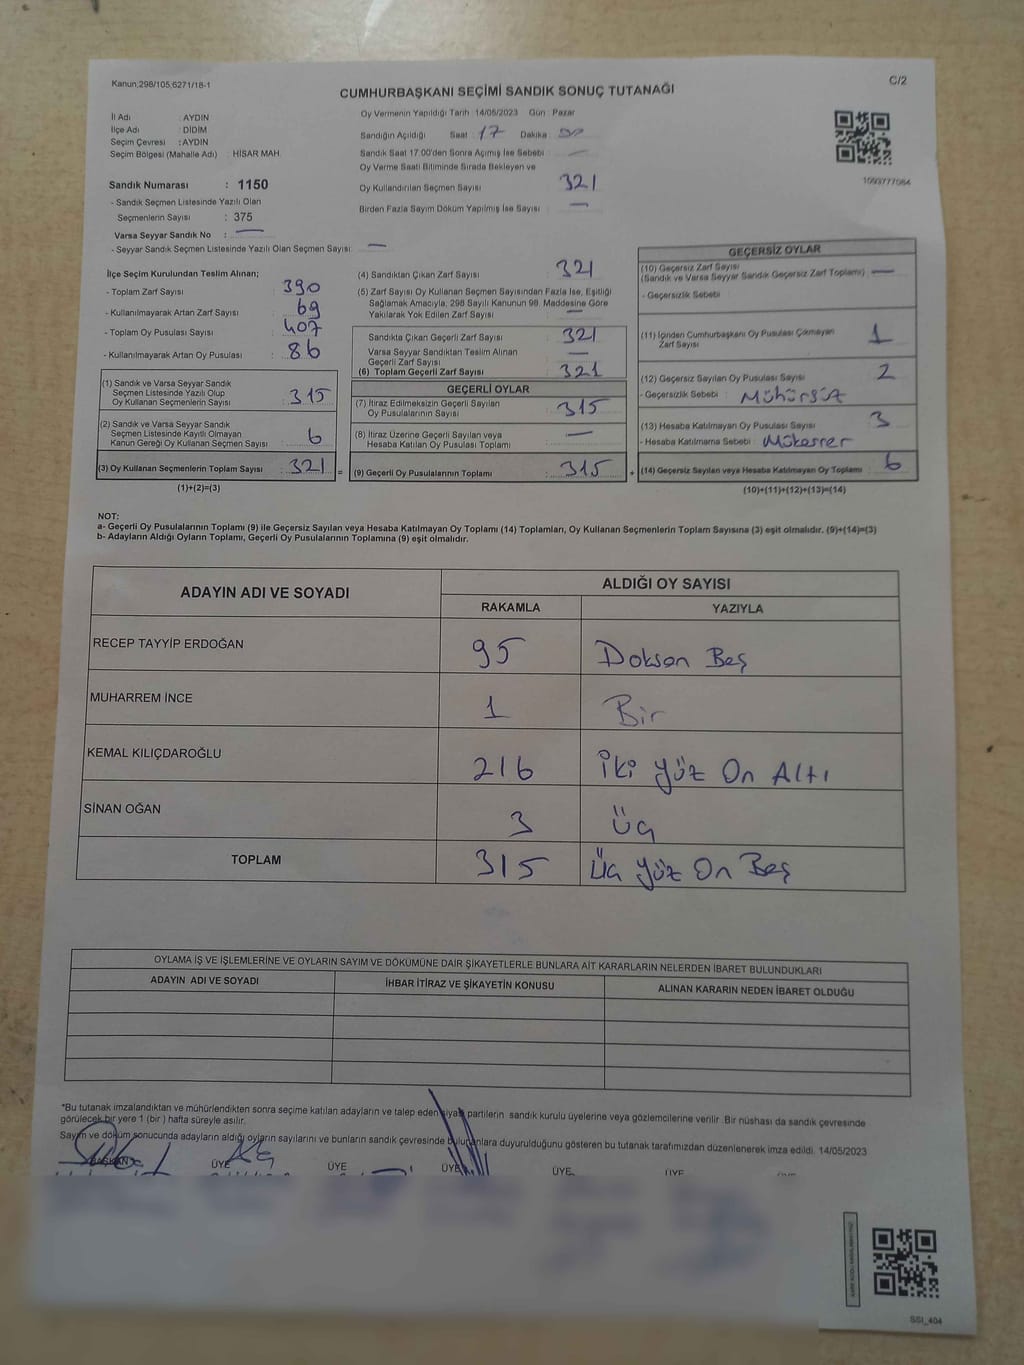 Kanun:298/105,6271/18-1
C/2
CUMHURBAŞKANI SEÇİMİ SANDIK SONUÇ TUTANAĞI
İl Adı : AYDIN
İlçe Adı : DİDİM
Seçim Çevresi : AYDIN
Seçim Bölgesi (Mahalle Adı) : HİSAR MAH.
Sandık Numarası : 1150
- Sandık Seçmen Listesinde Yazılı Olan
Seçmenlerin Sayısı : 375
Varsa Seyyar Sandık No : —
- Seyyar Sandık Seçmen Listesinde Yazılı Olan Seçmen Sayısı: —
Oy Vermenin Yapıldığı Tarih :14/05/2023 Gün : Pazar
Sandığın Açıldığı Saat : 17 Dakika :
Sandık Saat 17:00'den Sonra Açımış İse Sebebi : —
Oy Verme Saati Bitiminde Sırada Bekleyen ve
Oy Kullandırılan Seçmen Sayısı : 321
Birden Fazla Sayım Döküm Yapılmış İse Sayısı : —
1093777084
İlçe Seçim Kurulundan Teslim Alınan;
- Toplam Zarf Sayısı : 390
- Kullanılmayarak Artan Zarf Sayısı : 69
- Toplam Oy Pusulası Sayısı : 407
- Kullanılmayarak Artan Oy Pusulası : 86
(1) Sandık ve Varsa Seyyar Sandık
Seçmen Listesinde Yazılı Olup
Oy Kullanan Seçmenlerin Sayısı : 315
(2) Sandık ve Varsa Seyyar Sandık
Seçmen Listesinde Kayıtlı Olmayan
Kanun Gereği Oy Kullanan Seçmen Sayısı : 6
(3) Oy Kullanan Seçmenlerin Toplam Sayısı : 321 =
(1)+(2)=(3)
(4) Sandıktan Çıkan Zarf Sayısı : 321
(5) Zarf Sayısı Oy Kullanan Seçmen Sayısından Fazla İse, Eşitliği
Sağlamak Amacıyla, 298 Sayılı Kanunun 98. Maddesine Göre
Yakılarak Yok Edilen Zarf Sayısı : —
Sandıkta Çıkan Geçerli Zarf Sayısı : 321
Varsa Seyyar Sandıktan Teslim Alınan
Geçerli Zarf Sayısı : —
(6) Toplam Geçerli Zarf Sayısı : 321
GEÇERLİ OYLAR
(7) İtiraz Edilmeksizin Geçerli Sayılan
Oy Pusulalarının Sayısı : 315
(8) İtiraz Üzerine Geçerli Sayılan veya
Hesaba Katılan Oy Pusulası Toplamı : —
(9) Geçerli Oy Pusulalarının Toplamı : 315 +
GEÇERSİZ OYLAR
(10) Geçersiz Zarf Sayısı
(Sandık ve Varsa Seyyar Sandık Geçersiz Zarf Toplamı) : —
- Geçersizlik Sebebi :
(11) İçinden Cumhurbaşkanı Oy Pusulası Çıkmayan
Zarf Sayısı : 1
(12) Geçersiz Sayılan Oy Pusulası Sayısı : 2
- Geçersizlik Sebebi : Mühürsüz
(13) Hesaba Katılmayan Oy Pusulası Sayısı : 3
- Hesaba Katılmama Sebebi : Mükerrer
(14) Geçersiz Sayılan veya Hesaba Katılmayan Oy Toplamı : 6
(10)+(11)+(12)+(13)=(14)
NOT:
a- Geçerli Oy Pusulalarının Toplamı (9) ile Geçersiz Sayılan veya Hesaba Katılmayan Oy Toplamı (14) Toplamları, Oy Kullanan Seçmenlerin Toplam Sayısına (3) eşit olmalıdır. (9)+(14)=(3)
b- Adayların Aldığı Oyların Toplamı, Geçerli Oy Pusulalarının Toplamına (9) eşit olmalıdır.
ADAYIN ADI VE SOYADI ALDIĞI OY SAYISI
RAKAMLA YAZIYLA
RECEP TAYYİP ERDOĞAN 95 Doksan Beş
MUHARREM İNCE 1 Bir
KEMAL KILIÇDAROĞLU 216 İki Yüz On Altı
SİNAN OĞAN 3 Üç
TOPLAM 315 Üç Yüz On Beş
OYLAMA İŞ VE İŞLEMLERİNE VE OYLARIN SAYIM VE DÖKÜMÜNE DAİR ŞİKAYETLERLE BUNLARA AİT KARARLARIN NELERDEN İBARET BULUNDUKLARI
ADAYIN ADI VE SOYADI İHBAR İTİRAZ VE ŞİKAYETİN KONUSU ALINAN KARARIN NEDEN İBARET OLDUĞU
*Bu tutanak imzalandıktan ve mühürlendikten sonra seçime katılan adayların ve talep eden siyasi partilerin sandık kurulu üyelerine veya gözlemcilerine verilir. Bir nüshası da sandık çevresinde
görülecek bir yere 1 (bir ) hafta süreyle asılır.
Sayım ve döküm sonucunda adayların aldığı oyların sayılarını ve bunların sandık çevresinde bulunanlara duyurulduğunu gösteren bu tutanak tarafımızdan düzenlenerek imza edildi. 14/05/2023
BAŞKAN ÜYE ÜYE ÜYE ÜYE ÜYE
SSI_404